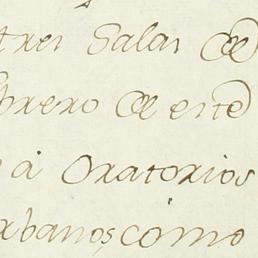 tres Salas de
brero de este
a Oratorios
rbanos, como